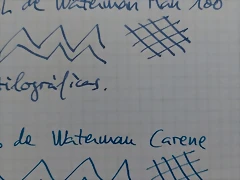 de Waterman Man 100
tilográficas.
de Waterman Carene